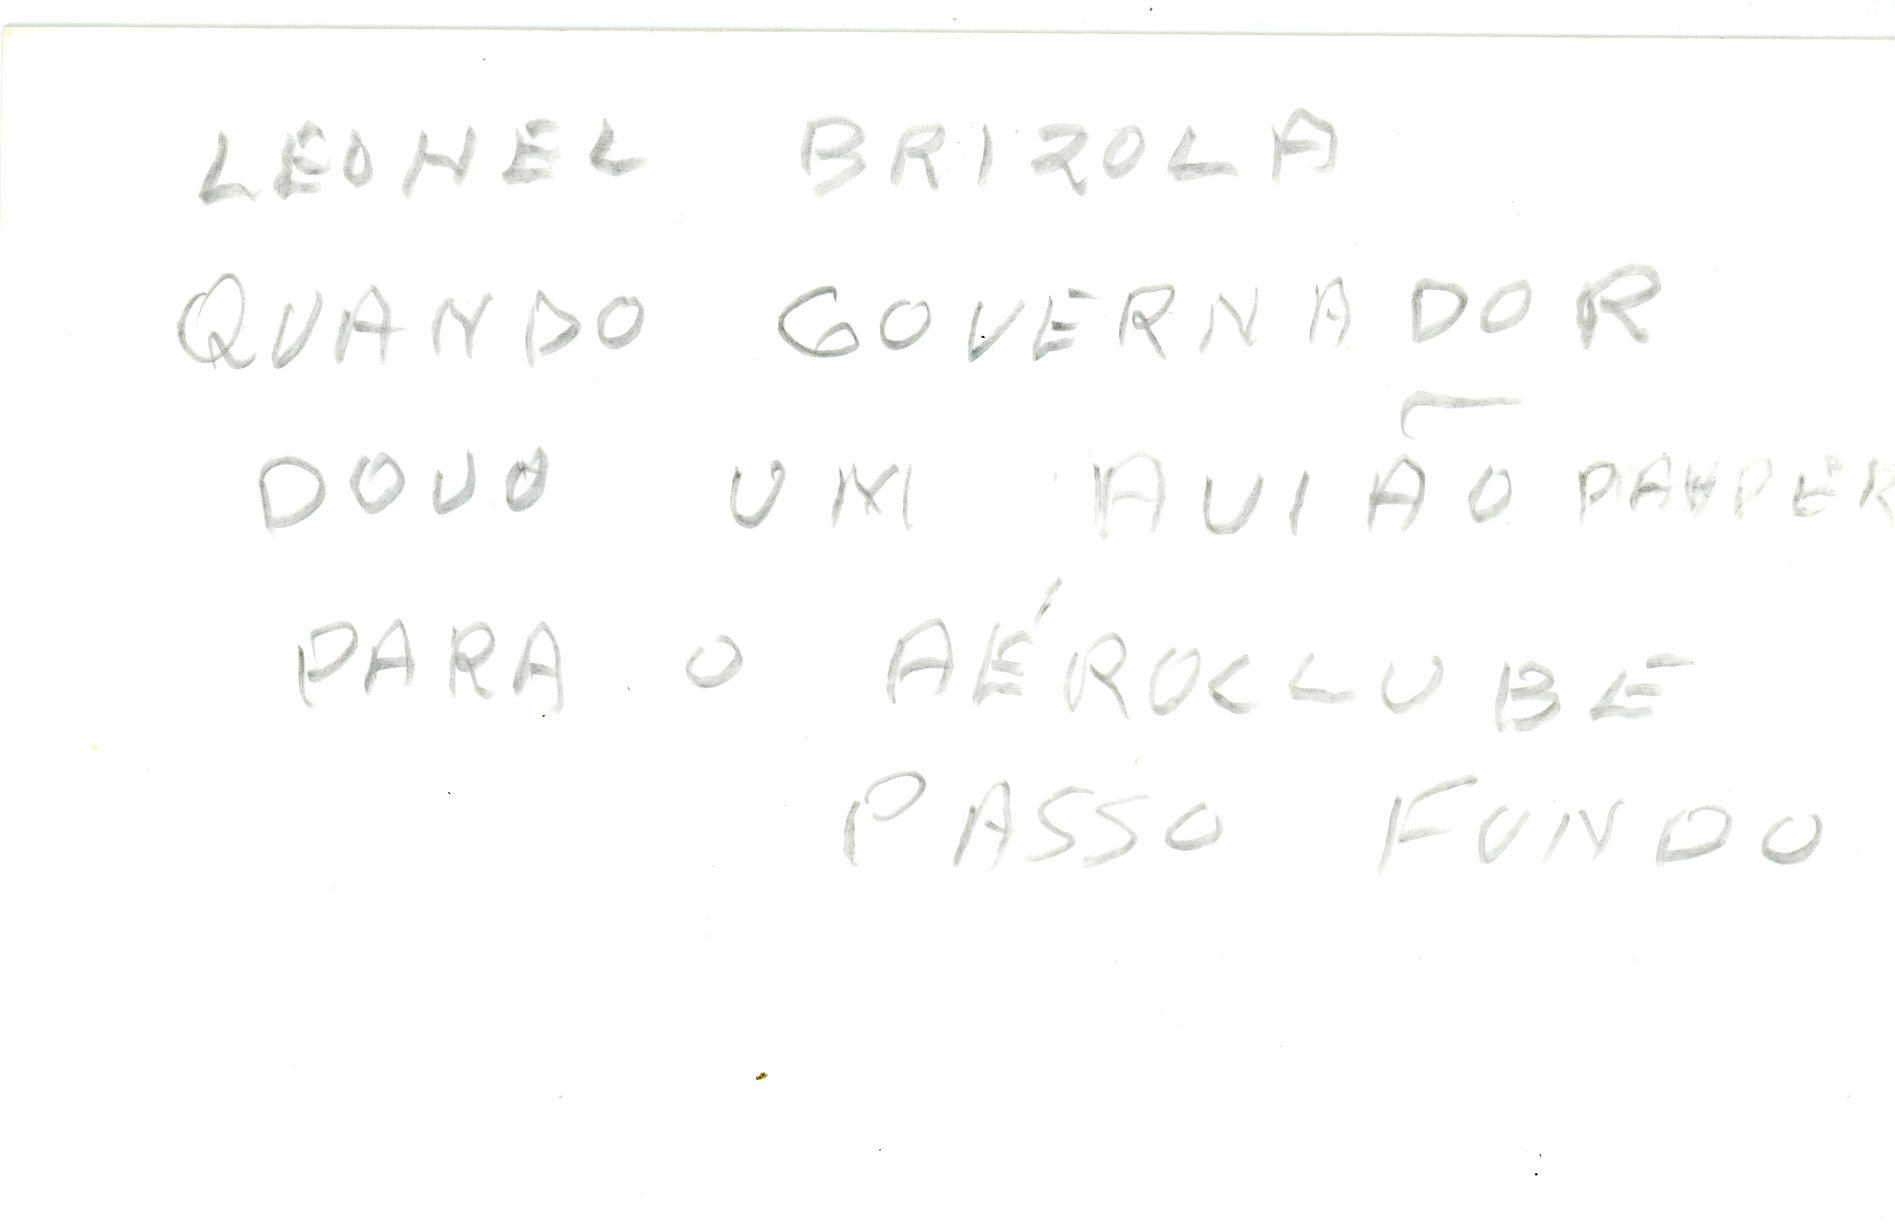 LEONEL BRIZOLA
QUANDO GOVERNADOR
DOUO UM AVIÃO
PARA O AÉROCLUBE
PASSO FUNDO